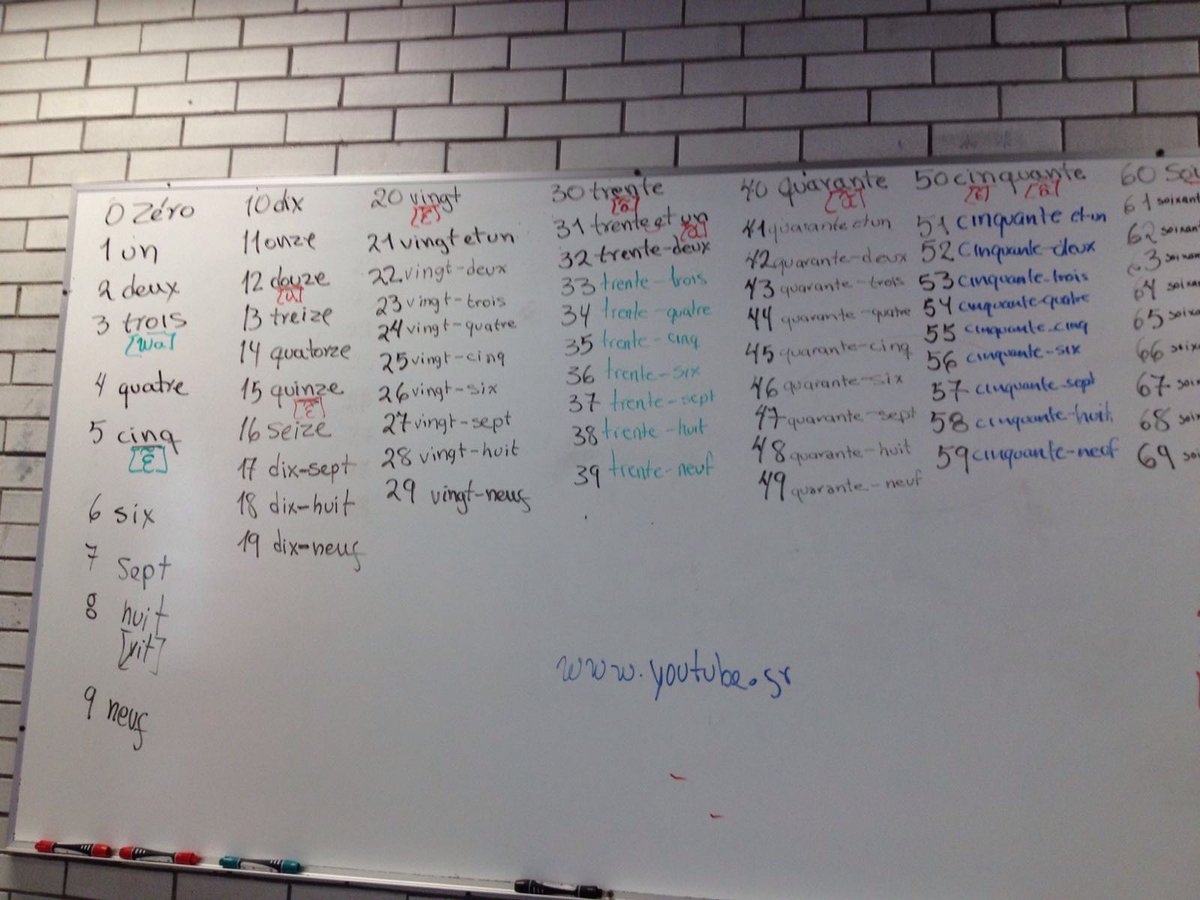 0 Zéro
1 un
2 deux
3 trois
[wa]
4 quatre
5 cinq
[ɛ̃]
6 six
7 sept
8 huit
[ɥit]
9 neuf
10 dix
11 onze
12 douze
[u]
13 treize
14 quatorze
15 quinze
[ɛ̃]
16 seize
17 dix-sept
18 dix-huit
19 dix-neuf
20 vingt
[ɛ̃]
21 vingt et un
22 vingt-deux
23 vingt-trois
24 vingt-quatre
25 vingt-cinq
26 vingt-six
27 vingt-sept
28 vingt-huit
29 vingt-neuf
30 trente
[ã]
31 trente et un
32 trente-deux
33 trente-trois
34 trente-quatre
35 trente-cinq
36 trente-six
37 trente-sept
38 trente-huit
39 trente-neuf
40 quarante
[ã]
41 quarante et un
42 quarante-deux
43 quarante-trois
44 quarante-quatre
45 quarante-cinq
46 quarante-six
47 quarante-sept
48 quarante-huit
49 quarante-neuf
50 cinquante
[ɛ̃] [ã]
51 cinquante et un
52 cinquante-deux
53 cinquante-trois
54 cinquante-quatre
55 cinquante-cinq
56 cinquante-six
57 cinquante-sept
58 cinquante-huit
59 cinquante-neuf
60 soi
61 soixant
62 soixan
63 soixan
64 soixan
65 soixa
66 soixa
67 soi
68 soi
69 soi
www.youtube.gr